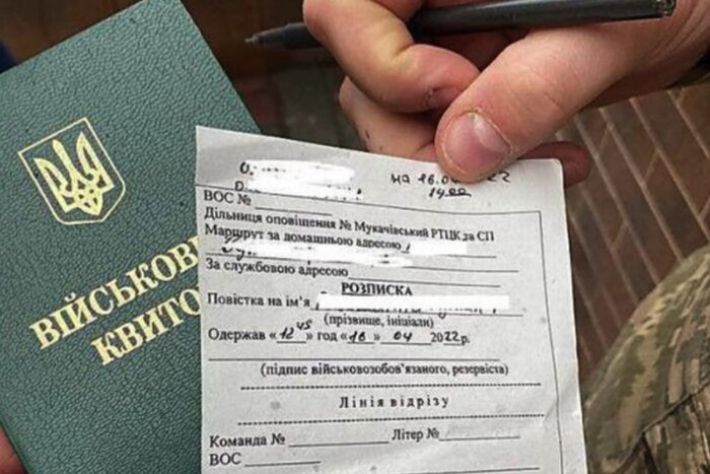 ВІЙСЬКОВ
КВИТО
на 16.0 22
14:00
ВОС №
Дільниця оповіщення № Мукачівський РТЦК та СП
Маршрут за домашньою адресою
За службовою адресою
РОЗПИСКА
Повістка на ім'я
(прізвище, ініціали)
Одержав «12 45» год «16 » 04 2022р.
(підпис військовозобов'язаного, резервіста)
Лінія відрізу
Команда № Літер №
ВОС